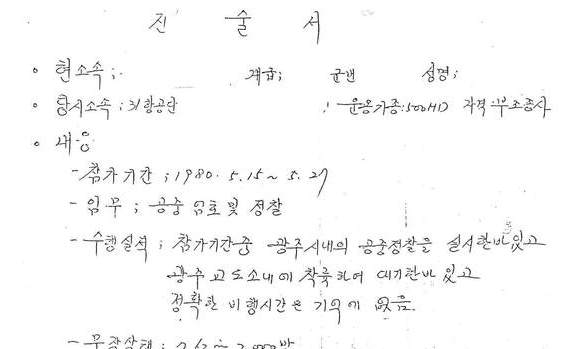 진 술 서
• 현소속; 계급; 군번 성명;
• 당시소속; 31항공단 운용기종:500MD 자격:부조종사
• 내용
- 참가기간; 1980. 5.15~5.27
- 임무; 공중 엄호 및 정찰
- 수행실적; 참가기간중 광주시내의 공중정찰을 실시한바있고
광주교도소내에 착륙하여 대기한바 있고
정확한 비행시간은 기억에 없음.
- 무장상태;